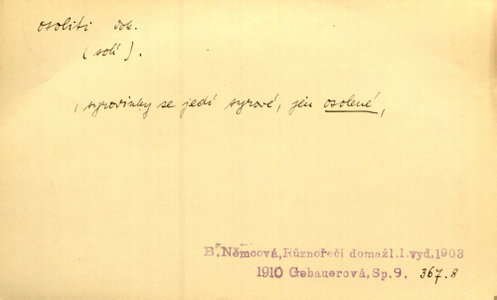 osoliti dok.
(solí).
, syrovinky se jedí syrové, jen osolené,
B. Němcová, Různořečí domažl.1.vyd.1903
1910 Gebauerová, Sp.9. 367.8